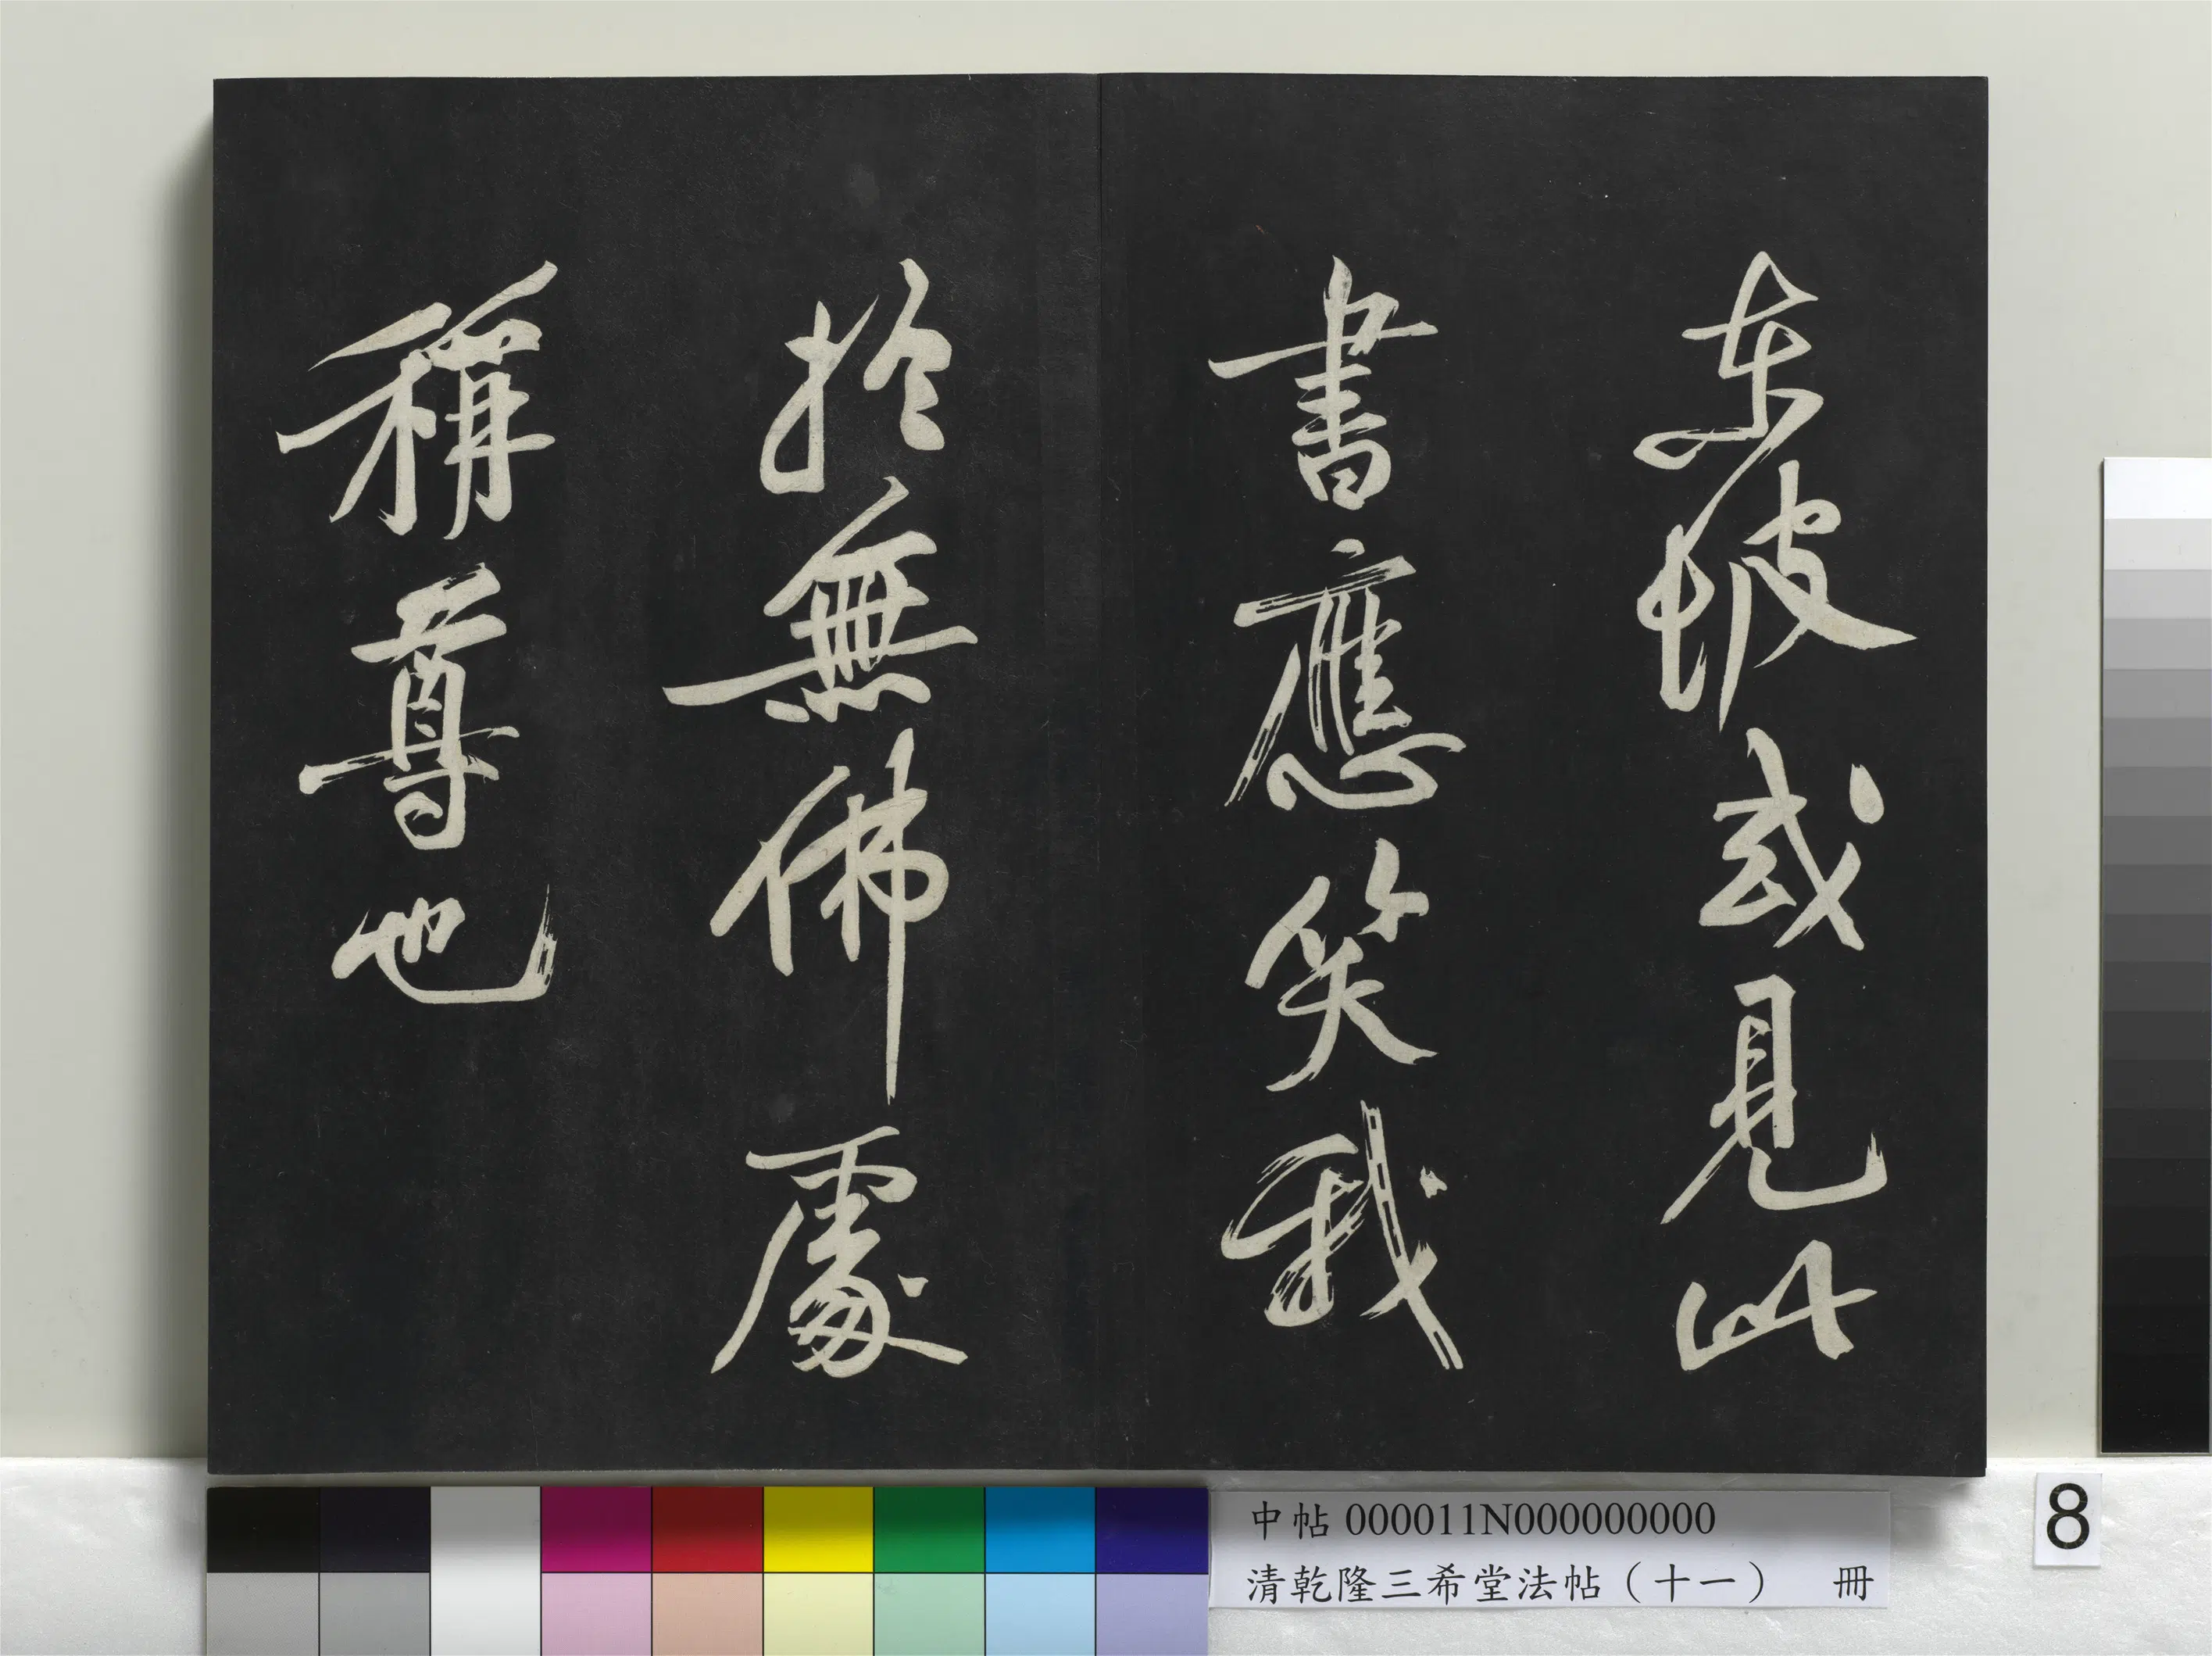 東坡或見此
書應笑我
於無佛處
稱尊也
中帖 000011N000000000
清乾隆三希堂法帖（十一） 冊
8